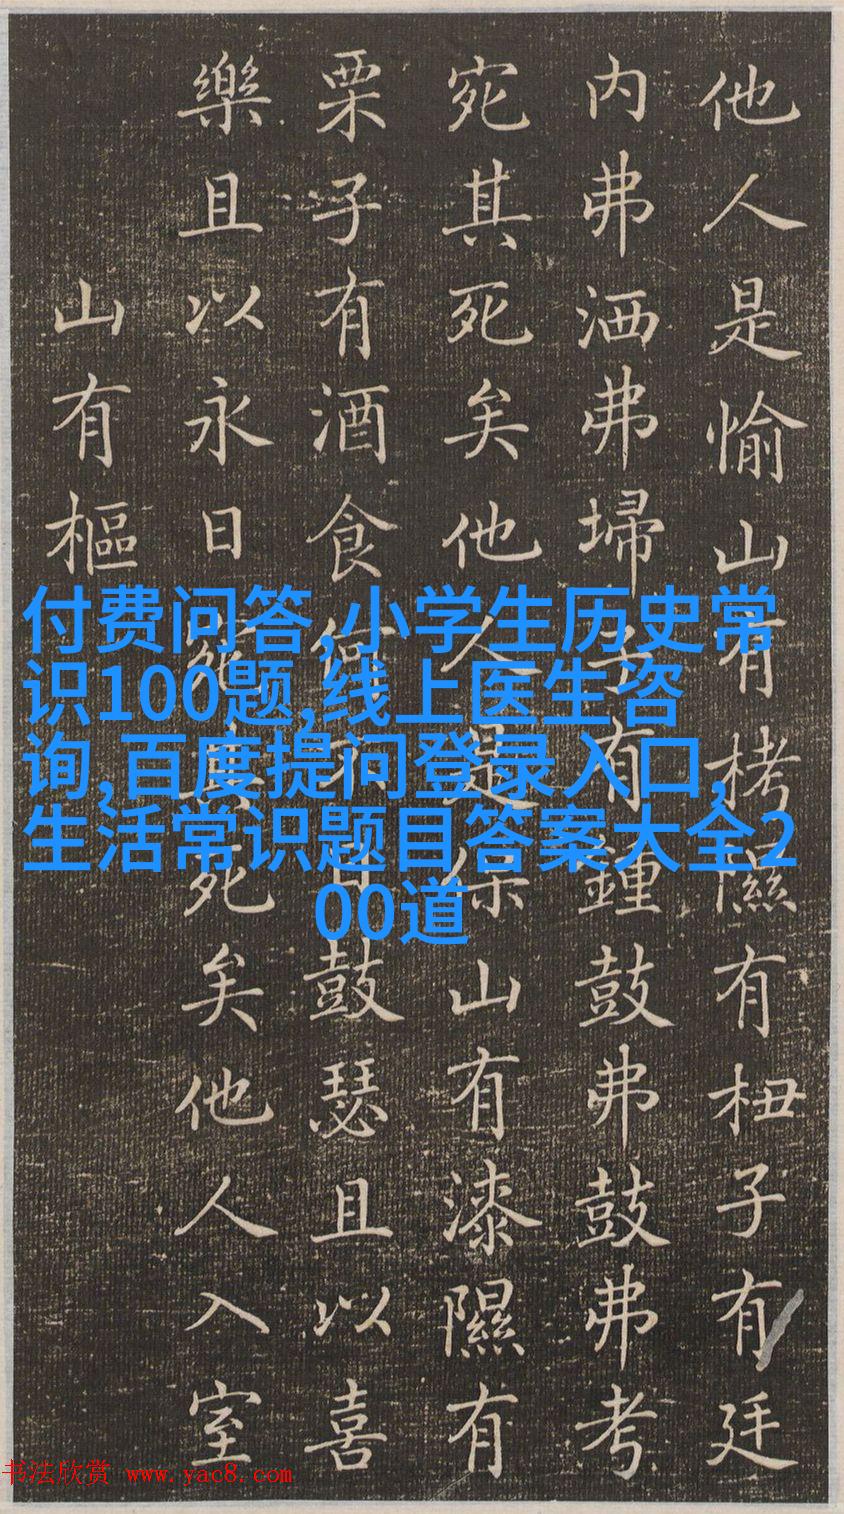 他人是愉山有栲隰有杻子有廷
内弗洒弗埽子有鍾鼓弗鼓弗考
宛其死矣他人是保山有漆隰有
栗子有酒食何不日鼓瑟且以喜
樂且以永日宛其死矣他人入室
山有樞
付费问答,小学生历史常
识100题,线上医生咨
询,百度提问登录入口,
生活常识题目答案大全2
00道
书法欣赏 www.yac8.com